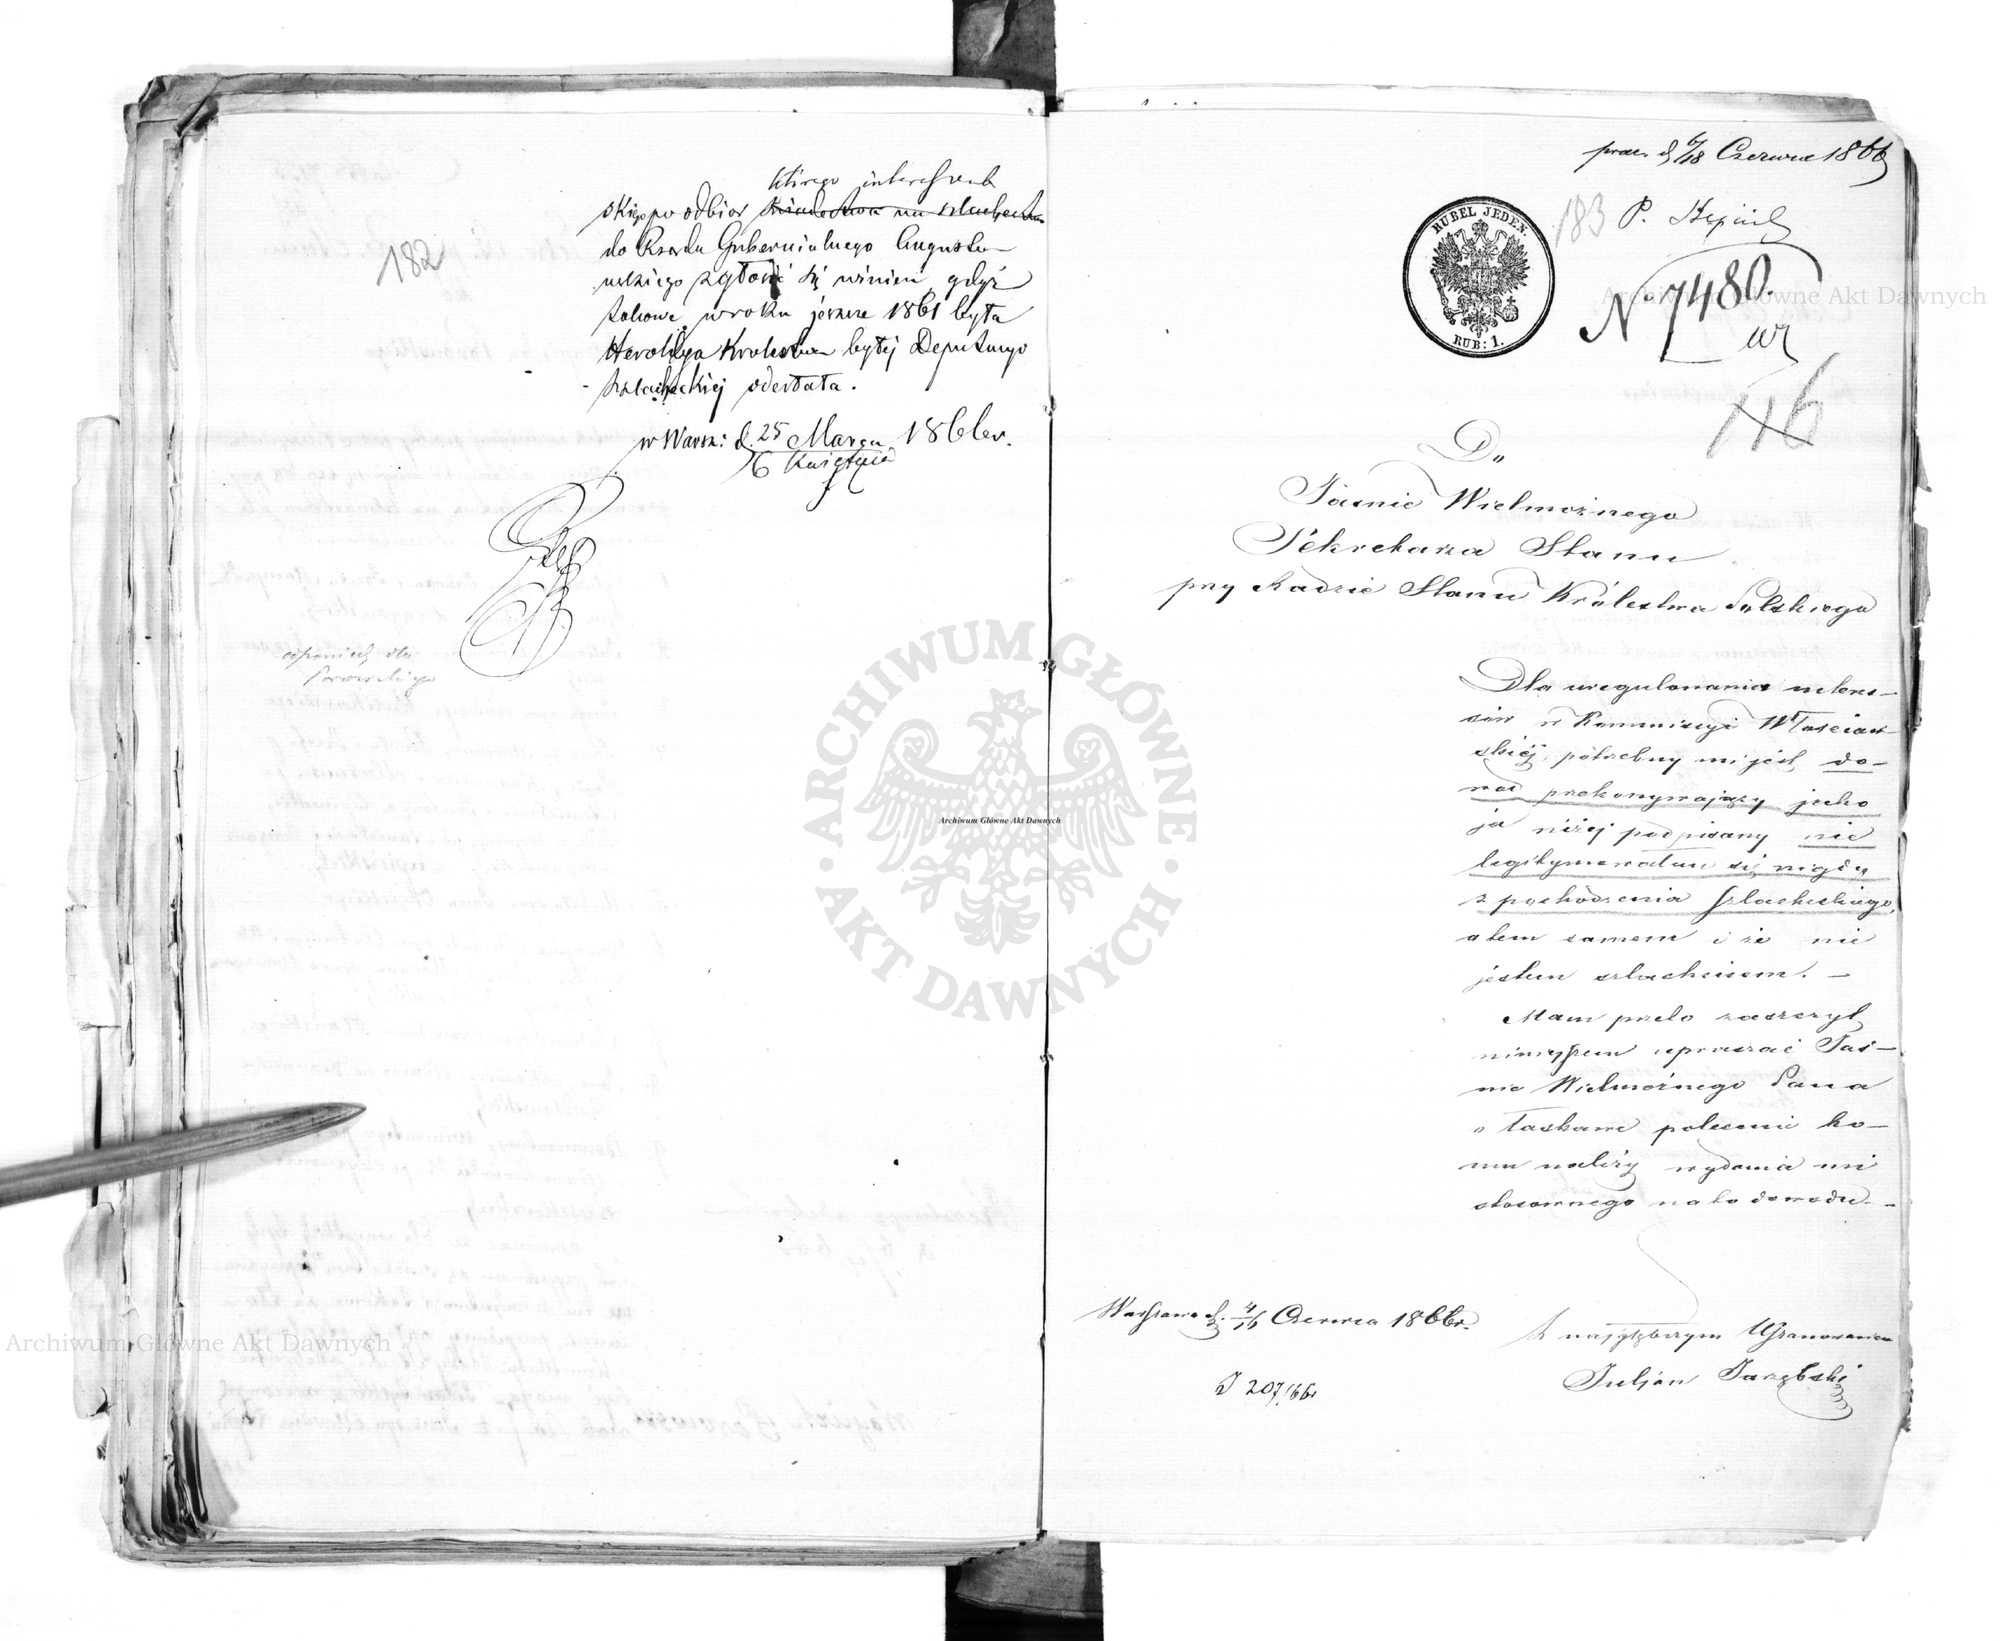 182
którego interessent
skiego po odbiór świadectwa na szlachectwo
do Rządu Gubernialnego Augusto-
wskiego zgłosić się winien, gdyż
takowe w roku jeszcze 1861 była
Heroldya Królestwa byłej Deputacyi
Szlacheckiej odesłała.
w Warsz: d. 25 Marca 1866 r.
6 Kwietnia
odpowiedź dla
Archiwum Główne Akt Dawnych
prez. d. 6/18 Czerwca 1866
183 P.
RUBEL JEDEN.
RUB: 1.
Archiwum Główne Akt Dawnych
No 7480.
116
Do
Jaśnie Wielmożnego
Sekretarza Stanu
przy Radzie Stanu Królestwa Polskiego
Dla uregulowania interes-
sów w Kommissyi Włościań-
skiéj, potrzebny mi jest do-
wód przekonywający jako
ja niżej podpisany nie
legitymowałem się nigdy
z pochodzenia szlacheckiego,
a tem samem i że nie
jestem szlachcicem. —
Mam przeto zaszczyt
niniejszem upraszać Jaś-
nie Wielmożnego Pana
o łaskawe polecenie ko-
mu należy wydania mi
stosownego na to dowodu. -
Warszawa d. 4/16 Czerwca 1866 r.
Z najgłębszym Uszanowaniem
Julian Jarzębski
J 207/66
ARCHIWUM GŁÓWNE AKT DAWNYCH
Archiwum Główne Akt Dawnych